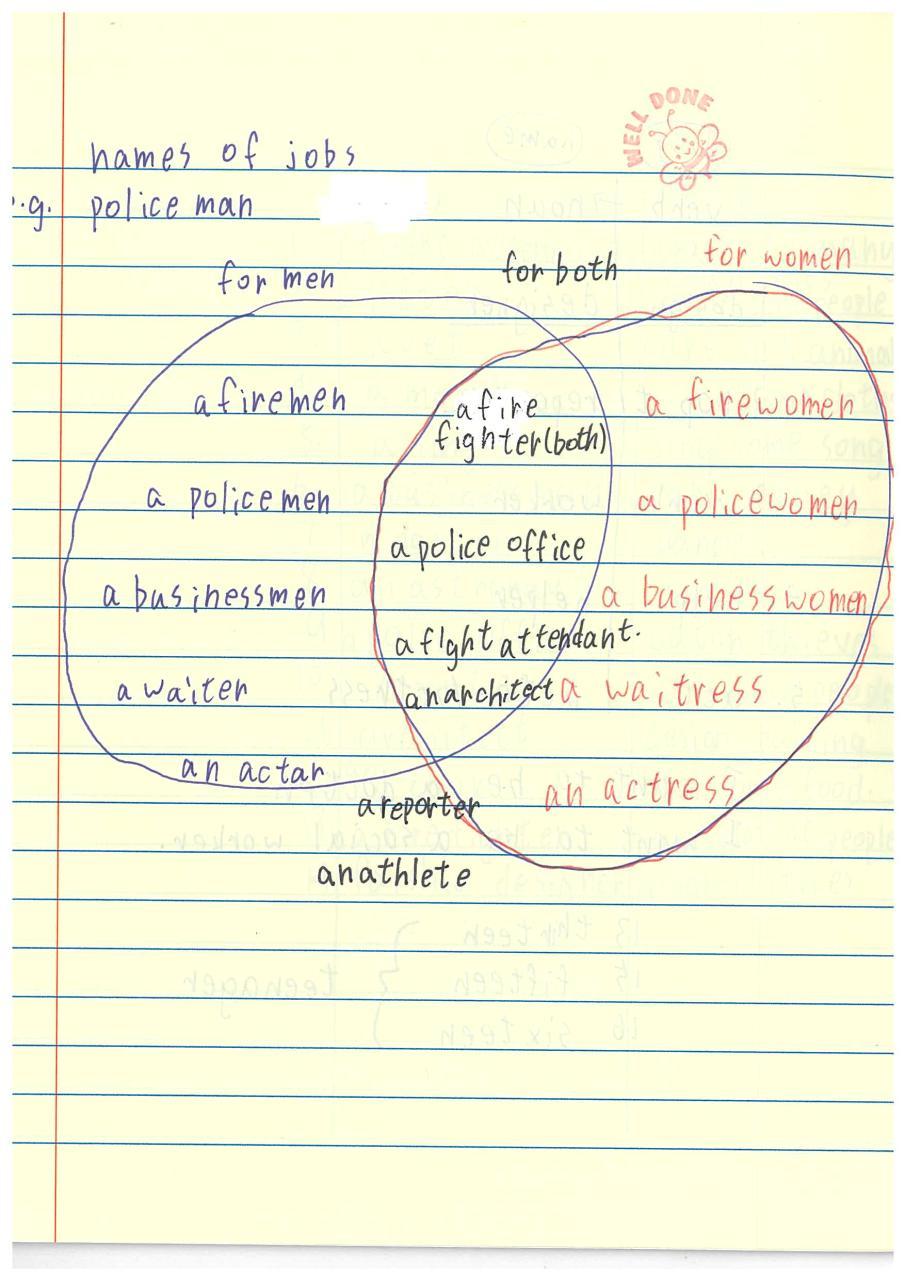 WELL DONE
names of jobs
e.g. police man
for men for both for women
a firemen a fire fighter(both) a firewomen
a policemen a police office a policewomen
a businessmen a businesswomen
a flght attendant.
a waiter an architect a waitress
an actar an actress
a reporter
an athlete